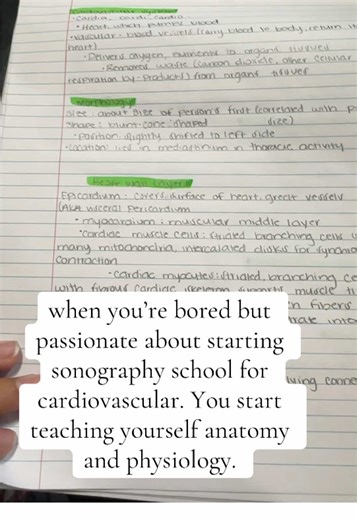 Cardiovascular System
-Cardia, cardi: cardio
• Heart which pumps blood
• vascular - blood vessels (carry blood to body, return it
heart)
• Delivers oxygen, nutrients to organs tissues
• Removes waste (carbon dioxide, other cellular
respiration by-products) from organs tissues
Morphology
Size: about size of person's first (correlated with p
size)
Shape: blunt-cone shaped
• Position: slightly shifted to left side
•Location: lies in mediastinum in thoracic activity
Heart Wall Layers
Epicardium: covers surface of heart, great vessels
(AKA visceral pericardium
• myocardium: muscular middle layer
•cardiac muscle cells: striated branching cells w
many mitochondria, intercalated disks for synchro
contraction
- cardiac myocytes: striated, branching ce
with fibrous cardiac skeleton supports muscle ti
fibers
when you're bored but
passionate about starting
sonography school for
cardiovascular. You start
teaching yourself anatomy
and physiology.